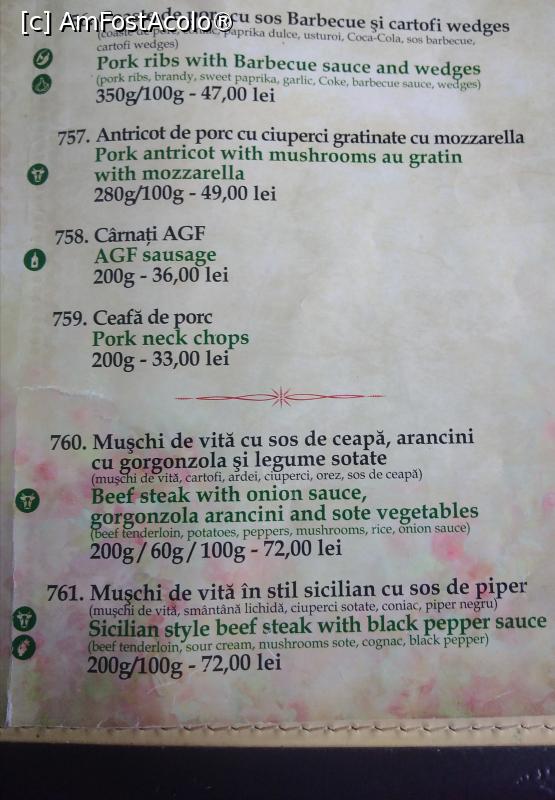 [c] AmFostAcolo®
de porc cu sos Barbecue şi cartofi wedges
(coaste de porc, coniac, paprika dulce, usturoi, Coca-Cola, sos barbecue,
cartofi wedges)
Pork ribs with Barbecue sauce and wedges
(pork ribs, brandy, sweet paprika, garlic, Coke, barbecue sauce, wedges)
350g/100g - 47,00 lei
757. Antricot de porc cu ciuperci gratinate cu mozzarella
Pork antricot with mushrooms au gratin
with mozzarella
280g/100g - 49,00 lei
758. Cârnați AGF
AGF sausage
200g - 36,00 lei
759. Ceafă de porc
Pork neck chops
200g - 33,00 lei
760. Muşchi de vită cu sos de ceapă, arancini
cu gorgonzola şi legume sotate
(muşchi de vită, cartofi, ardei, ciuperci, orez, sos de ceapă)
Beef steak with onion sauce,
gorgonzola arancini and sote vegetables
(beef tenderloin, potatoes, peppers, mushrooms, rice, onion sauce)
200g / 60g / 100g - 72,00 lei
761. Muşchi de vită în stil sicilian cu sos de piper
(muşchi de vită, smântână lichidă, ciuperci sotate, coniac, piper negru)
Sicilian style beef steak with black pepper sauce
(beef tenderloin, sour cream, mushrooms sote, cognac, black pepper)
200g/100g - 72,00 lei